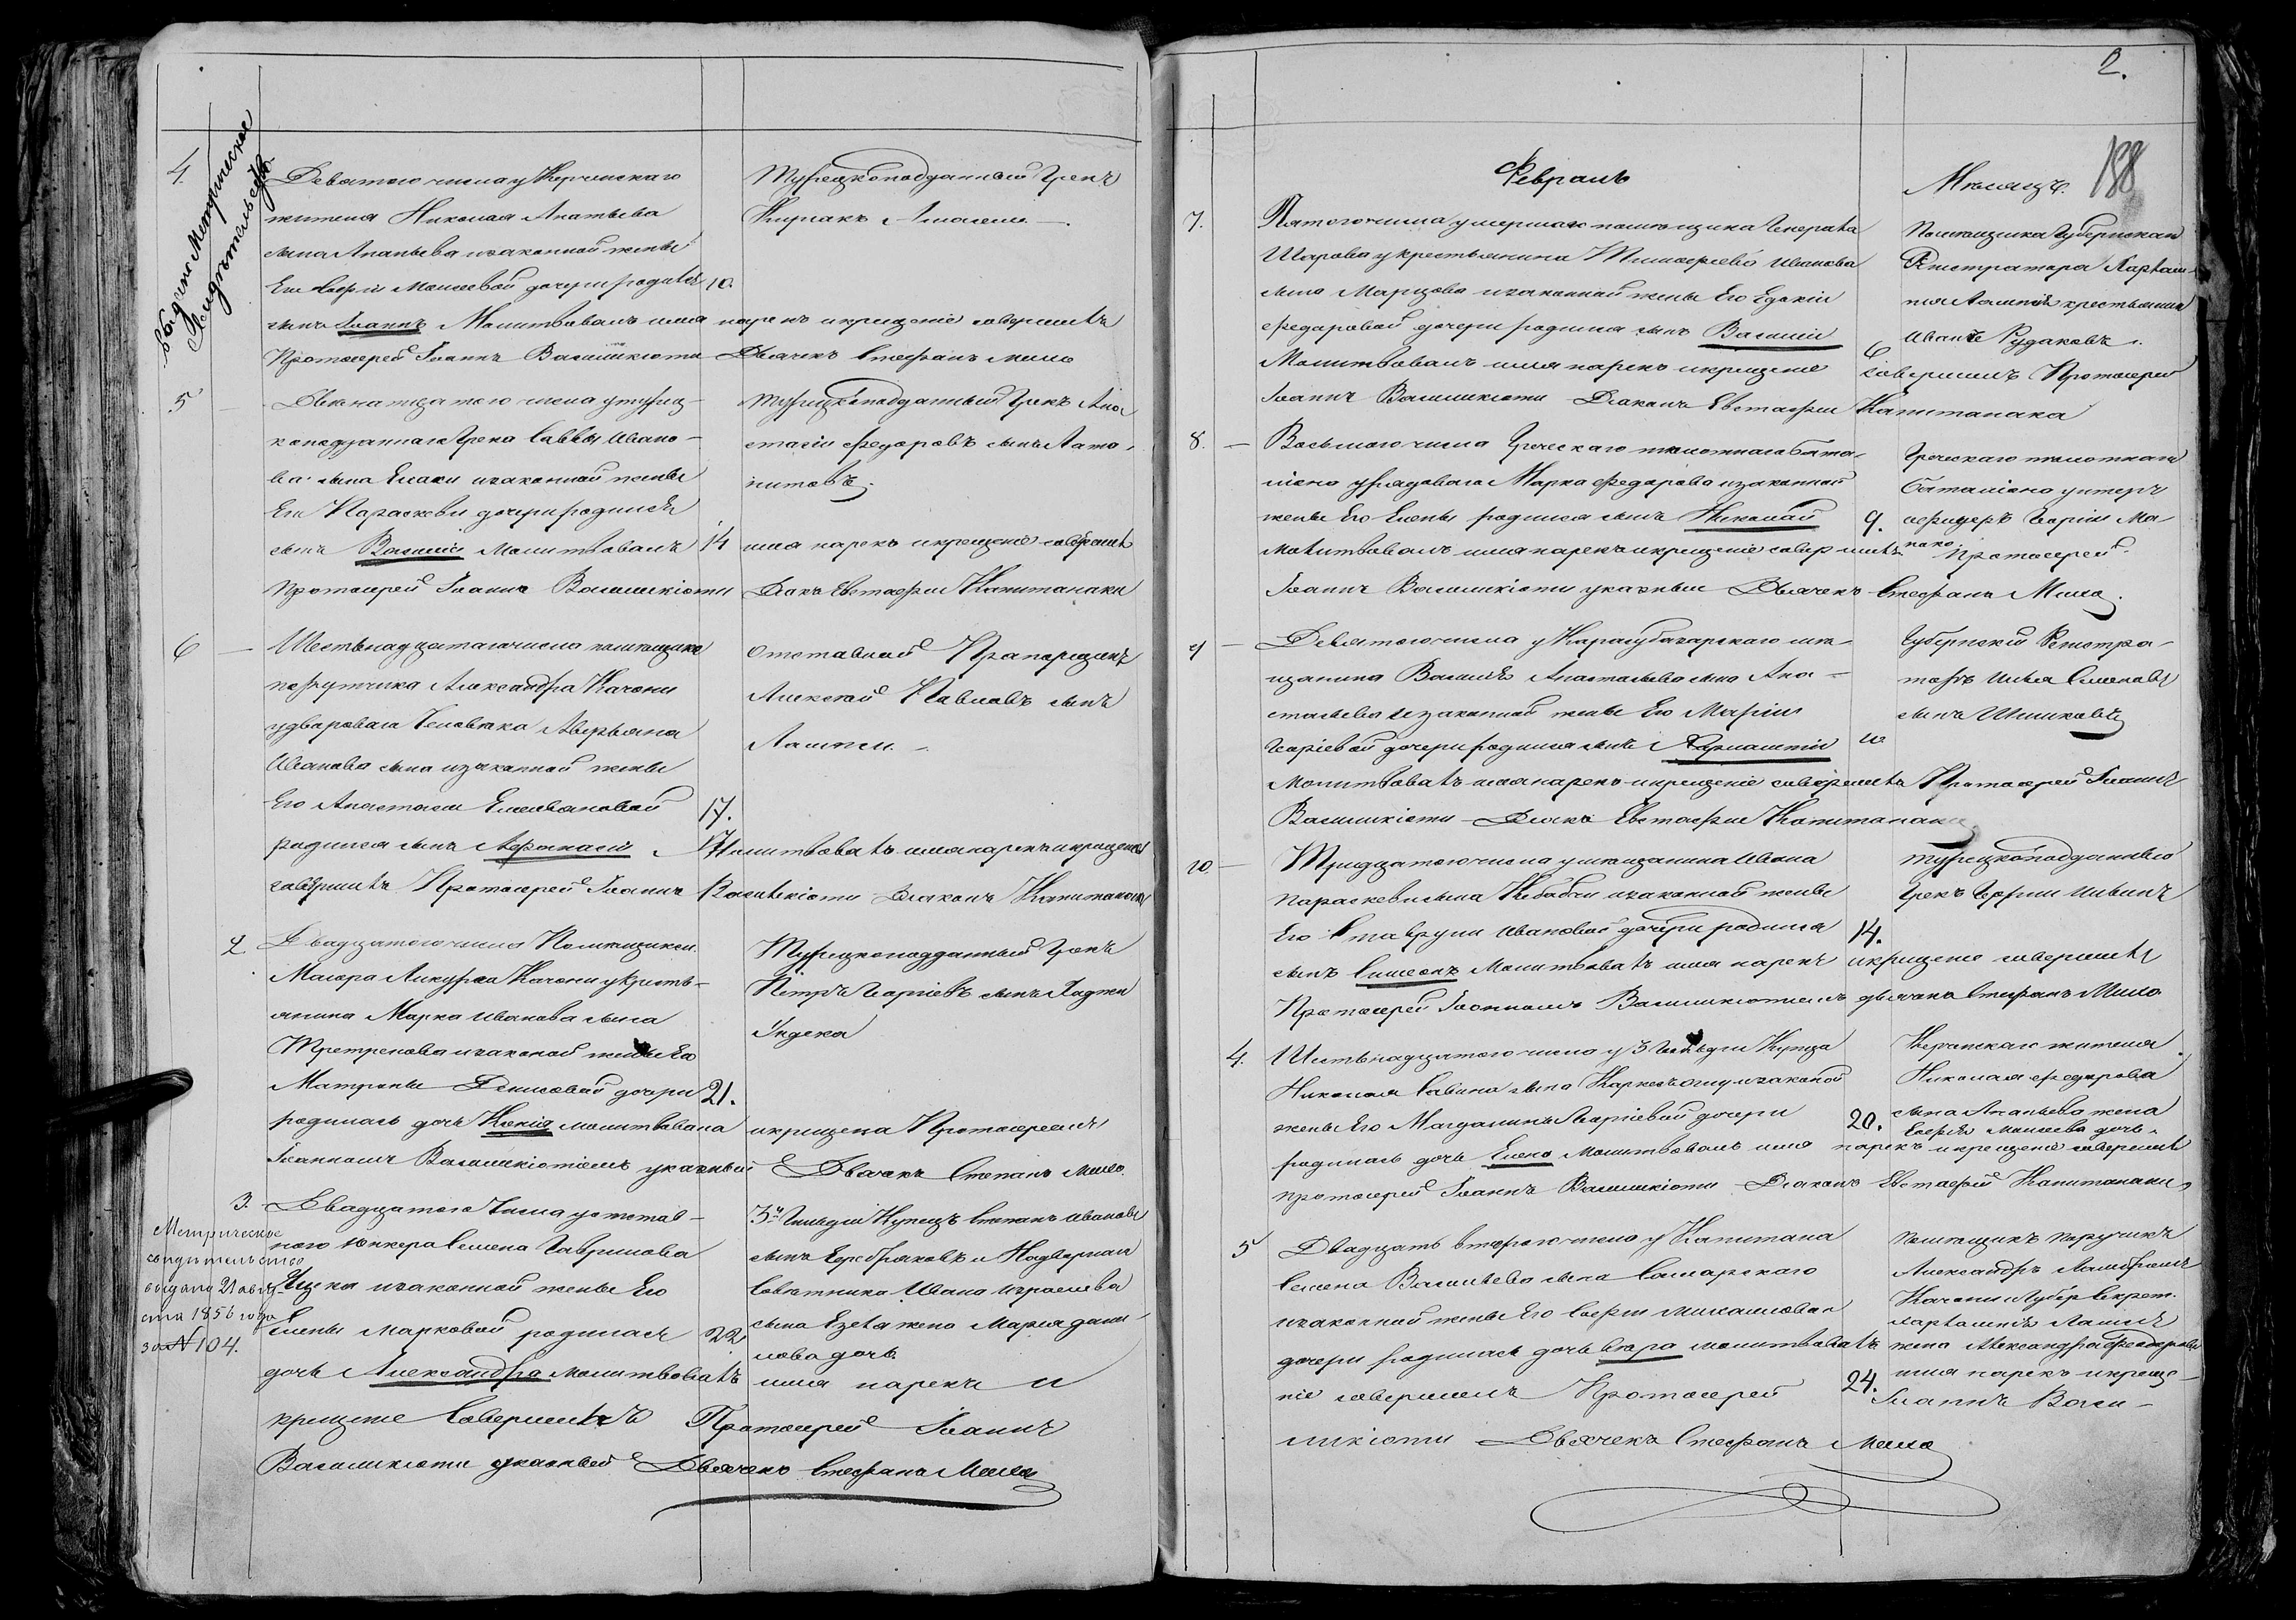 4.
выдано Метрическое
Свидетельство
Девятого числа у Керченскаго
жителя Николая Ананьева
сына Ананьева изаконной жены
Его Софіи Моисеевой дочери родился 10.
сынъ Іоаннъ Молитвовалъ имя нарекъ икрещеніе совершилъ
Протоіерей Іоаннъ Василикіоти Дьячекъ Стефанъ Мило
Турецкоподданный Грекъ
Киріакъ
5
Двенатцатого числа утурец-
коподданнаго Грека Саввы Ивано-
ва сына изаконной жены
Его Параскевы дочери родился
сынъ Василій Молитвовалъ 14 имя нарекъ икрещеніе совершилъ
Протоіерей Іоаннъ Василикіоти Діаконъ Евстафій Капитанаки
Турецкоподданный Грекъ Ана-
стасій Федоровъ сынъ
6
Шестьнадцатагочисла помещика
порутчика Александра Качони
удвороваго человека Аверьяна
Иванова сына изаконной жены
Его Анастасіи Емельяновой 17.
родился сынъ Афанасій Молитвовалъ имянарекъикрещеніе
совершилъ Протоіерей Іоаннъ Василикіоти Діаконъ Капитанаки
Отставной Прапорщикъ
Алексей Павловъ сынъ
Лампси
2
Двадцатогочисла Помещика
Маіора Ликурга Качони укресть-
янина Марка Иванова сына
изаконой жены Его
Матроны Денисовой дочери 21.
родилась дочь Ксенія молитвована икрещена Протоіереемъ
Іоанномъ Василикіотіемъ указный Дьячекъ Степанъ Мило.
Турецкоподданный Грекъ
Петръ Георгіевъ сынъ Хаджи
Индека
3.
Метрическое
свидетельство
выдано 21 авгу-
ста 1856 года
за № 104.
Двадцатого числа уотстав-
наго юнкера Семена Гаврилова
изаконной жены Его
Елены Марковой родилась 22
дочь Александра молитвовалъ имя нарекъ и
крещеніе Совершилъ Протоіерей Іоаннъ
Василикіоти указный Дьячекъ Стефанъ Мило
3й Гильдіи Купецъ Степанъ Ивановъ
сынъ Серебряковъ и Надворнаго
Советника Ивана Израилева
сына жена Марія Дани-
лова дочь.
2.
188
Февраль Месяцъ.
7.
Пятогочисла умершаго помещика Генерала
Шарова укрестьянина Тимофеева Иванова
сына Марцова изаконной жены Его Евдокіи
Федоровой дочери родился сынъ Василій 6
Молитвовалъ имя нарекъ икрещеніе совершилъ Протоіерей
Іоаннъ Василикіоти Діаконъ Евстафій Капитанаки
Помещика Губернскаго
Регистратора Харлам-
пія Лампси крестьянинъ
Иванъ Рудаковъ.
8.
Восьмогочисла Греческаго пехотнагобата-
ліона урядоваго Марка Федорова изаконной
жены Его Елены родился сынъ Николай 9.
Молитвовалъ имянарекъикрещеніе совершилъ Протоіерей
Іоаннъ Василикіоти указный Дьячекъ Стефанъ Мило
Греческаго пехотнаго
баталіона унтеръ
офицеръ Георгій Ма-
нако
9
Девятогочисла у Карасубазарскаго ме-
щанина Василія Анастасьева сына Ана-
стасьева изаконной жены Его Маріи
Георгіевой дочериродился сынъ Харлампій
Молитвовалъ имянарекъ икрещеніе совершилъ Протоіерей Іоаннъ
Василикіоти Діаконъ Евстафій Капитанаки
Губернскій Регистра-
торъ Илья Семеновъ
сынъ Шишковъ
10
Тридцатогочисла умещанина Ивана
Параскевисына изаконной жены
Его Ставрули Ивановой дочери родился 14.
сынъ Симеонъ Молитвовалъ имя нарекъ икрещеніе совершилъ
Протоіерей Іоанномъ Василикіотіемъ дьячекъ Стефанъ Мило
турецкоподданный
Грекъ Георгій
4.
Шестьнадцатого числа у 3 Гильдіи Купца
Николая Савина сына изаконой
жены Его Магдалины Георгіевой дочери 20.
родилась дочь Елена Молитвовалъ имя нарекъ икрещеніе совершилъ
протоіерей Іоаннъ Василикіоти Діаконъ Евстафій Капитанаки
Керченскаго жителя
Николая Федорова
сына Ананьева жена
Софія Моисеева дочь
5
Двадцать второгочисла у Капитана
Семена Васильева сына Самарскаго
изаконной жены Его Софіи Михаиловой
дочери родилась дочь Вера молитвовалъ имя нарекъ икреще-
ніе совершилъ Протоіерей 24. Іоаннъ Васи-
ликіоти Дьячекъ Стефанъ Мило
помещикъ Поручикъ
Александръ
Качони Губер. Секрет.
Харлампія Лампси
жена Александра Федорова